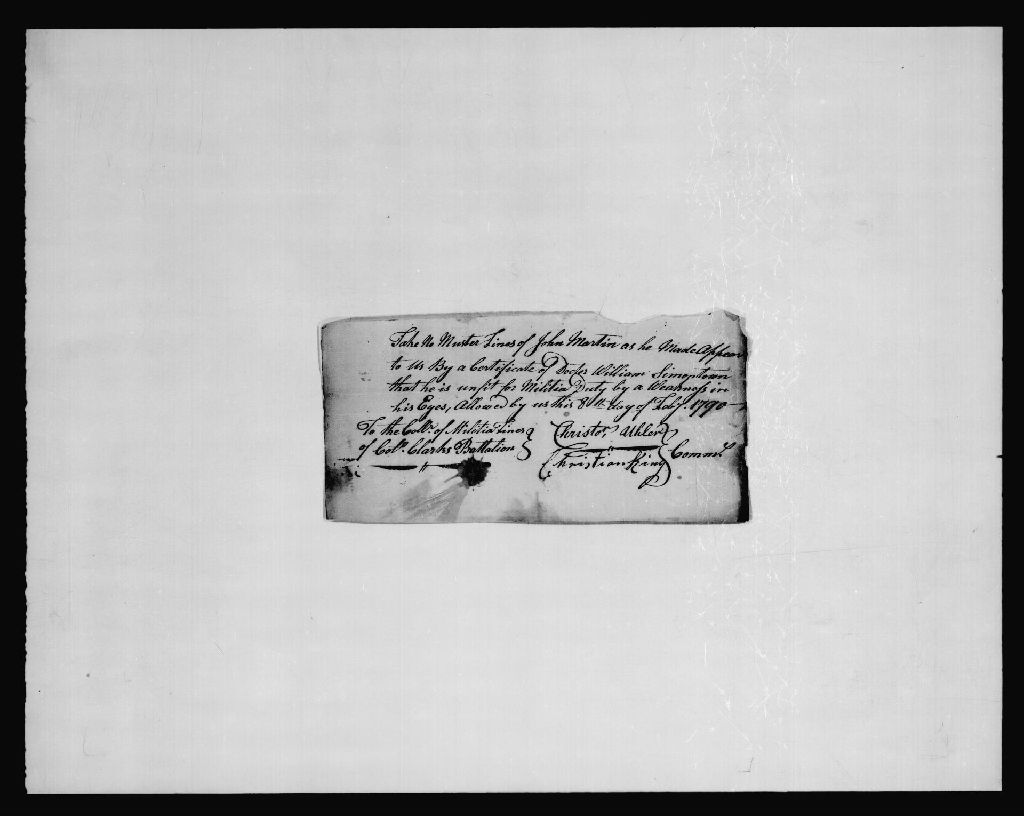 Take No Muster Fines of John Martin as he Made Appear
to us By a Certificate of Doctor William Simontown
that he is unfit for Militia Duty by a Weakness in
his Eyes, Allowed by us this 8th day of Feby. 1790
To the Collr. of Militia Fines
of Coln. Clarks Battalion
Christor. Uhler
Christian King
Commrs